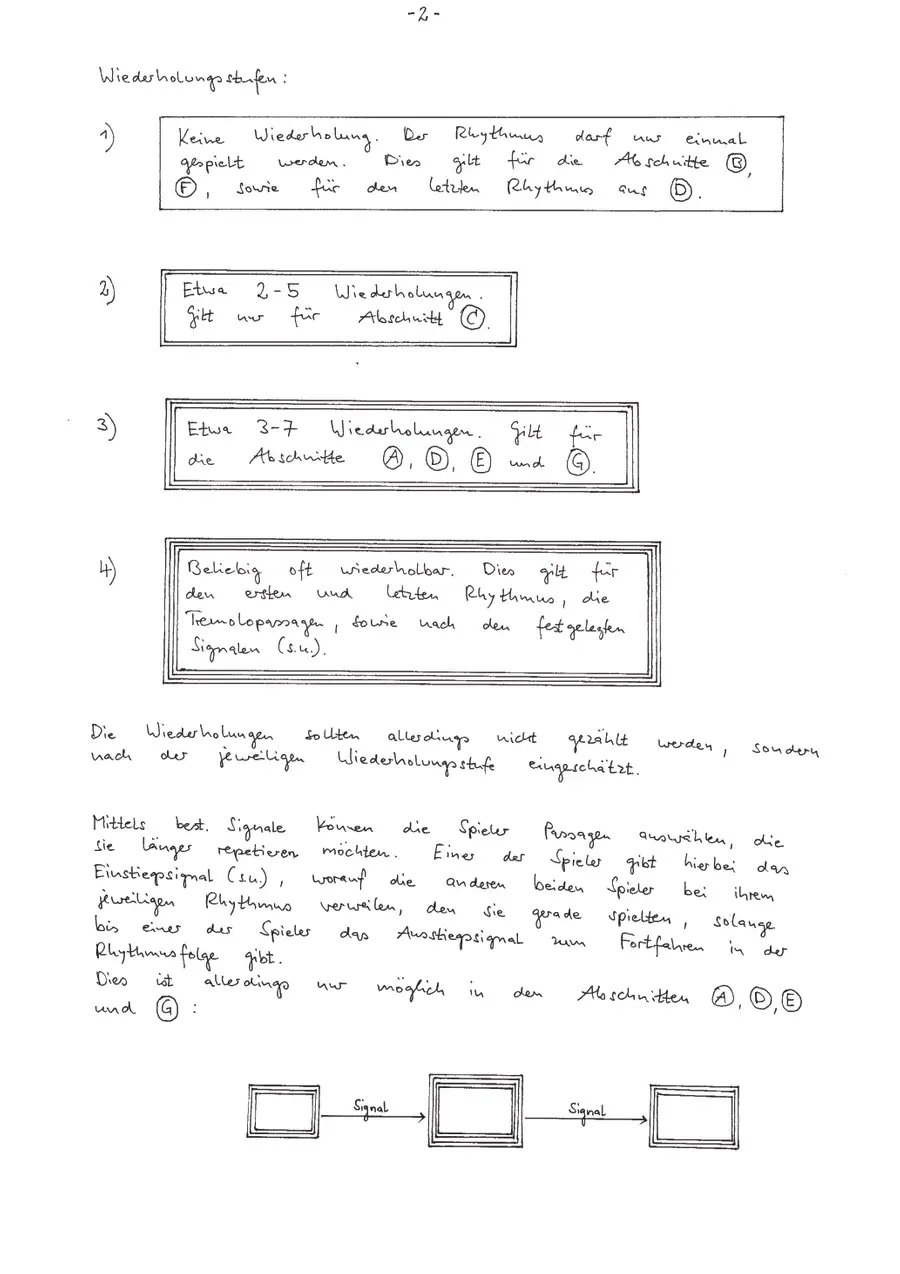 -2-
Wiederholungsstufen:
1)
Keine Wiederholung. Der Rhythmus darf nur einmal
gespielt werden. Dies gilt für die Abschnitte B,
F, sowie für den letzten Rhythmus aus D.
2)
Etwa 2-5 Wiederholungen.
Gilt nur für Abschnitt C.
3)
Etwa 3-7 Wiederholungen. Gilt für
die Abschnitte A, D, E und G.
4)
Beliebig oft wiederholbar. Dies gilt für
den ersten und letzten Rhythmus, die
Tremolopassagen, sowie nach den festgelegten
Signalen (s.u.).
Die Wiederholungen sollten allerdings nicht gezählt werden, sondern
nach der jeweiligen Wiederholungsstufe eingeschätzt.
Mittels best. Signale können die Spieler Passagen auswählen, die
sie länger repetieren möchten. Einer der Spieler gibt hierbei das
Einstiegssignal (s.u.), worauf die anderen beiden Spieler bei ihrem
jeweiligen Rhythmus verweilen, den sie gerade spielten, solange
bis einer der Spieler das Ausstiegssignal zum Fortfahren in der
Rhythmusfolge gibt.
Dies ist allerdings nur möglich in den Abschnitten A, D, E
und G :
Signal
Signal